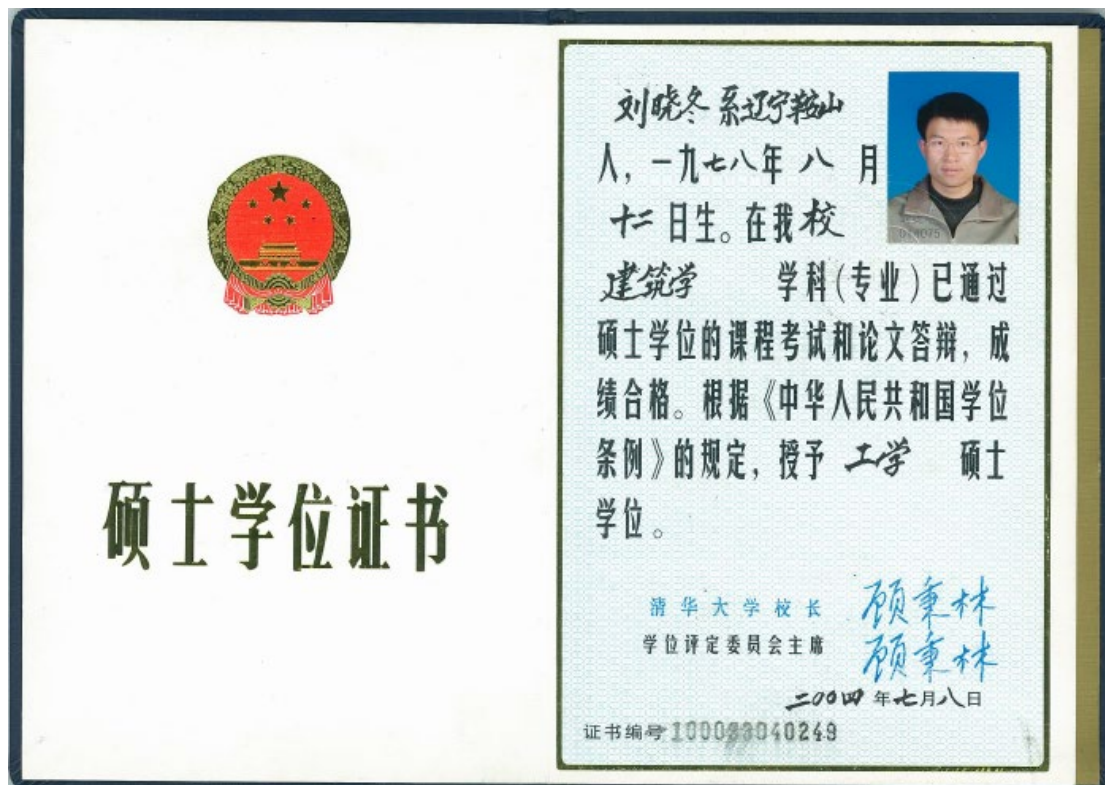 硕士学位证书
刘晓冬系辽宁鞍山
人,一九七八年八月
十二日生。在我校
建筑学 学科(专业)已通过
硕士学位的课程考试和论文答辩,成
绩合格。根据《中华人民共和国学位
条例》的规定,授予 工学 硕士
学位。
清华大学校长 顾秉林
学位评定委员会主席 顾秉林
二〇〇四年七月八日
证书编号